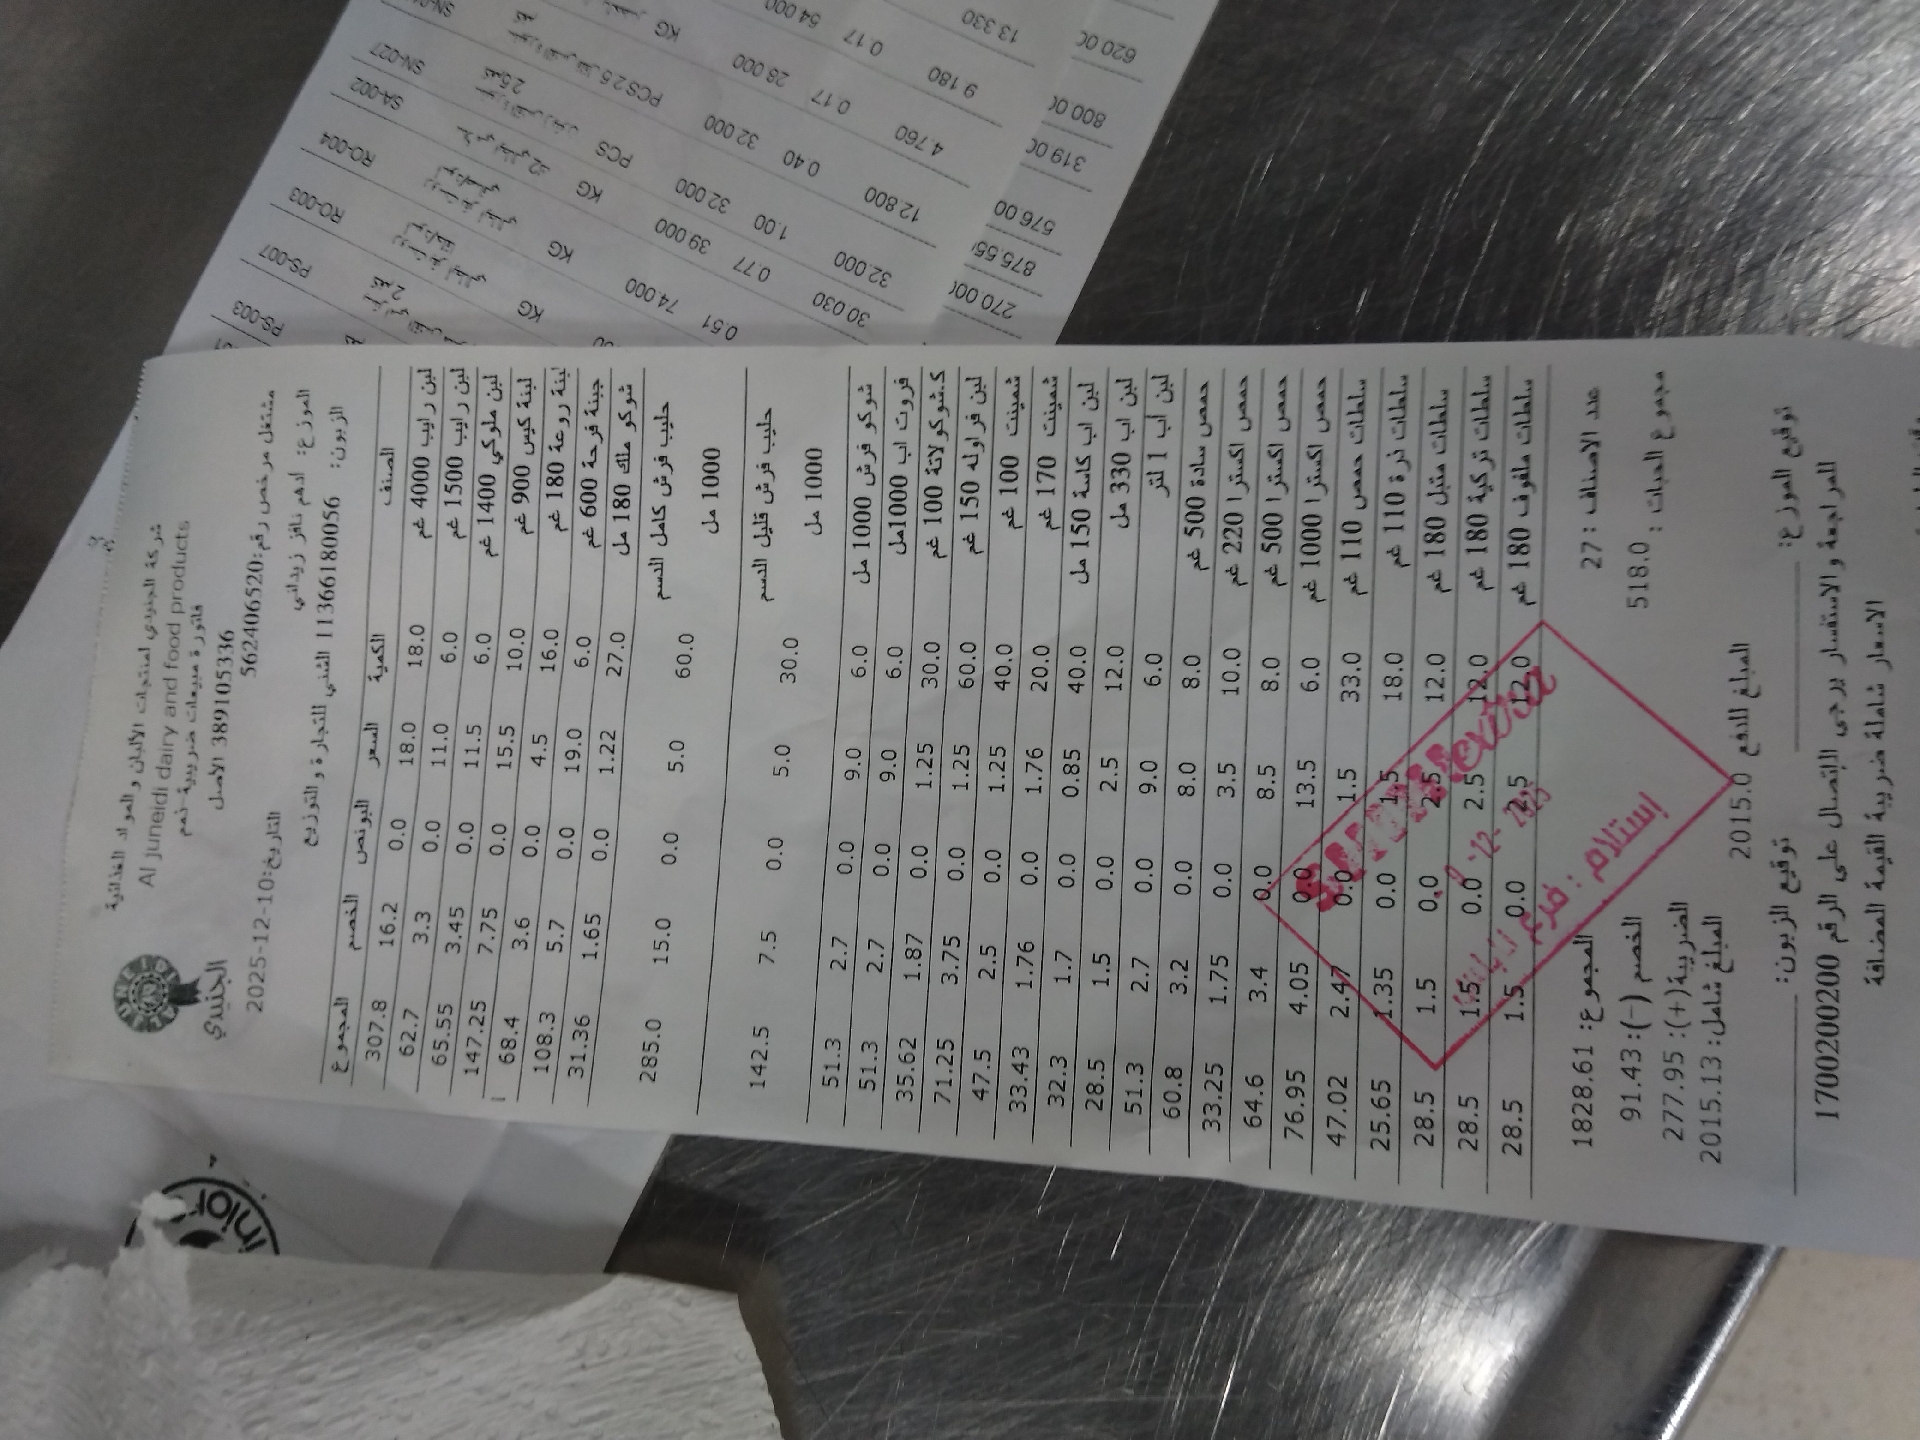 شركة الجنيدي لمنتجات الألبان والمواد الغذائية
Al Juneidi dairy and food products
فاتورة مبيعات ضريبية-نعم
3891053336 الاصل
الجنيدي
مشتغل مرخص رقم:562406520
التاريخ:10-12-2025
الموزع: ادهم نافز زيداني
الزبون: 11366180056 الشني للتجارة والتوزيع
الصنف الكمية السعر البونص الخصم المجموع
لبن رايب 4000 غم 18.0 18.0 0.0 16.2 307.8
لبن رايب 1500 غم 6.0 11.0 0.0 3.3 62.7
لبن ملوكي 1400 غم 6.0 11.5 0.0 3.45 65.55
لبنة كيس 900 غم 10.0 15.5 0.0 7.75 147.25
لبنة روعة 180 غم 16.0 4.5 0.0 3.6 68.4
جبنة فرحة 600 غم 6.0 19.0 0.0 5.7 108.3
شوكو ملك 180 مل 27.0 1.22 0.0 1.65 31.36
حليب فرش كامل الدسم 60.0 5.0 0.0 15.0 285.0
1000 مل
حليب فرش قليل الدسم 30.0 5.0 0.0 7.5 142.5
1000 مل
شوكو فرش 1000 مل 6.0 9.0 0.0 2.7 51.3
فروت اب 1000مل 6.0 9.0 0.0 2.7 51.3
ك.شوكولاتة 100 غم 30.0 1.25 0.0 1.87 35.62
لبن فراوله 150 غم 60.0 1.25 0.0 3.75 71.25
شمينت 100 غم 40.0 1.25 0.0 2.5 47.5
شمينت 170 غم 20.0 1.76 0.0 1.76 33.43
لبن اب كاسة 150 مل 40.0 0.85 0.0 1.7 32.3
لبن اب 330 مل 12.0 2.5 0.0 1.5 28.5
لبن اب 1 لتر 6.0 9.0 0.0 2.7 51.3
حمص سادة 500 غم 8.0 8.0 0.0 3.2 60.8
حمص اكسترا 220 غم 10.0 3.5 0.0 1.75 33.25
حمص اكسترا 500 غم 8.0 8.5 0.0 3.4 64.6
حمص اكسترا 1000 غم 6.0 13.5 0.0 4.05 76.95
سلطات حمص 110 غم 33.0 1.5 0.0 2.47 47.02
سلطات ذرة 110 غم 18.0 1.5 0.0 1.35 25.65
سلطات متبل 180 غم 12.0 2.5 0.0 1.5 28.5
سلطات تركية 180 غم 12.0 2.5 0.0 1.5 28.5
سلطات ملفوف 180 غم 12.0 2.5 0.0 1.5 28.5
إستلام : فرع
عدد الاصناف : 27
المجموع: 1828.61
مجموع الحبات : 518.0
الخصم (-): 91.43
الضريبة(+): 277.95
المبلغ شامل: 2015.13
المبلغ للدفع 2015.0
توقيع الموزع:
توقيع الزبون:
للمراجعة والاستفسار يرجى الاتصال على الرقم 1700200200
الاسعار شاملة ضريبة القيمة المضافة
SN-027
PCS 2.5
SA-002
PCS
RO-004
KG
RO-003
KG
PS-007
KG
PS-003
KG
54 000
0.17
13 330
620.00
28 000
0.17
9 180
800.00
32 000
0.17
4.760
319.00
32 000
0.40
12 800
576.00
39 000
1.00
32.000
875.55
74.000
0.77
30 030
270.00
0.51